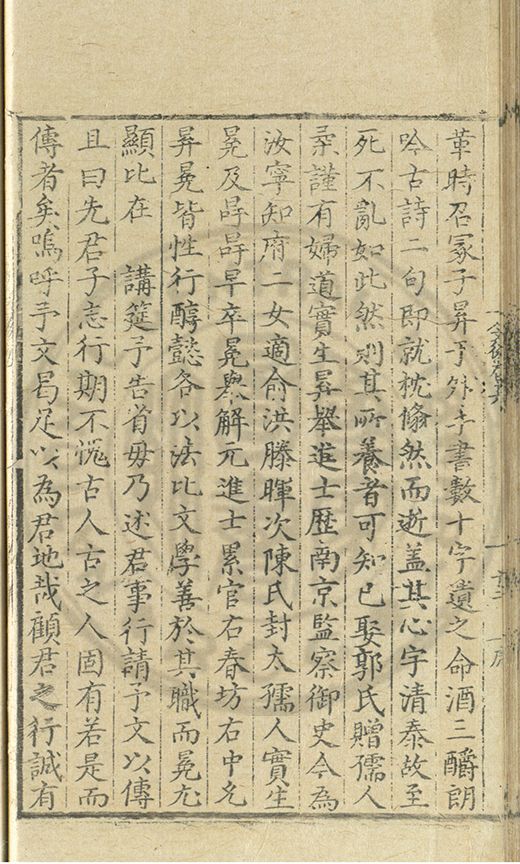 革時召冢子昇于外手書數十字遺之命酒三酹朗
吟古詩二句即就枕翛然而逝盖其心宇清泰故至
死不亂如此然則其所養者可知已娶郭氏贈孺人
柔謹有婦道實生昇舉進士歴南京監察御史今為
汝寧知府二女適俞洪滕暉次陳氏封太孺人實生
冕及㝵㝵早卒冕舉解元進士累官右春坊右中允
昇冕皆性行醇懿各以法比文學善於其職而冕尤
顯比在 講筵予告省毋乃述君事行請予文以傳
且曰先君子志行期不愧古人古之人固有若是而
傳者矣嗚呼予文曷足以為君地哉顧君之行誠有